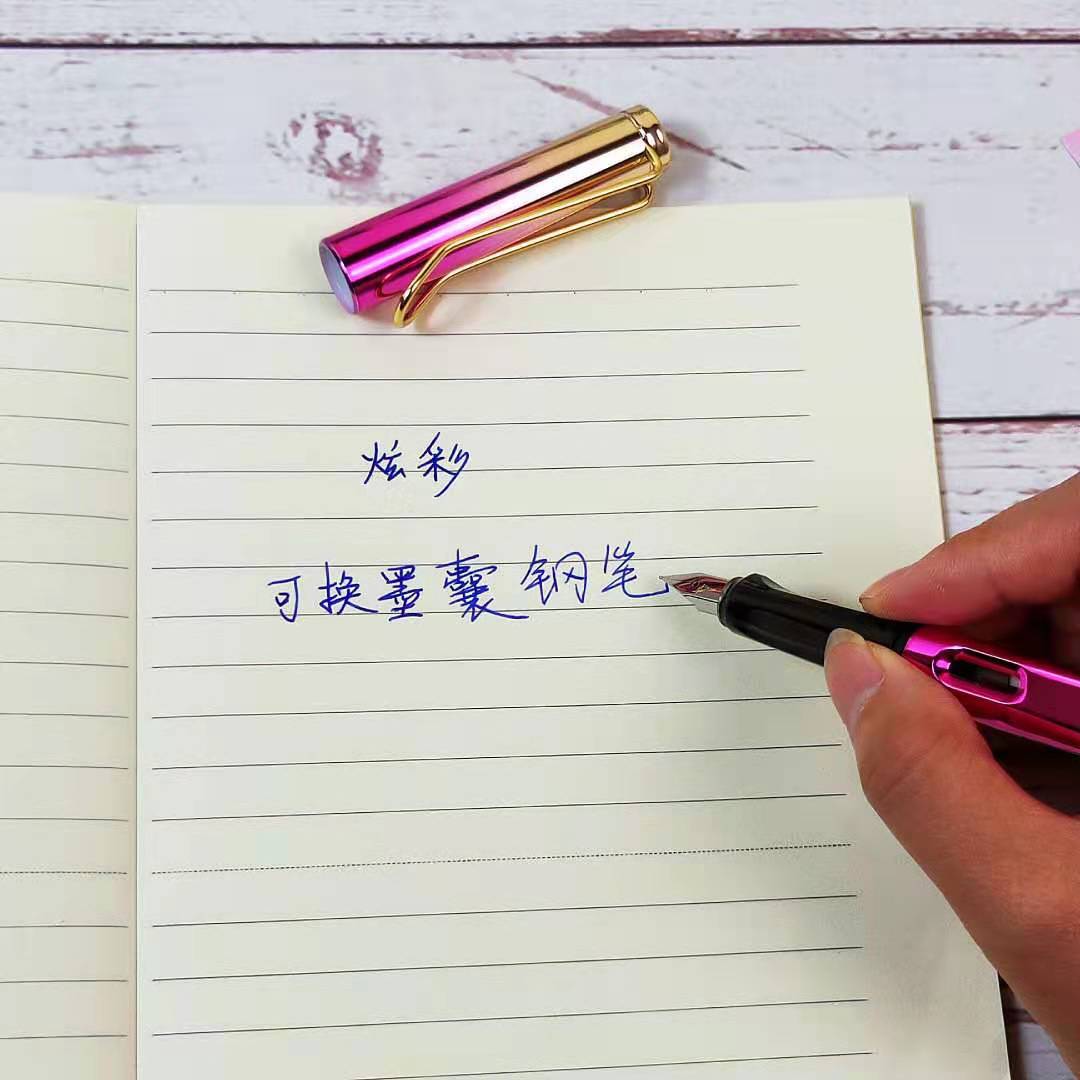 炫彩
可换墨囊钢笔